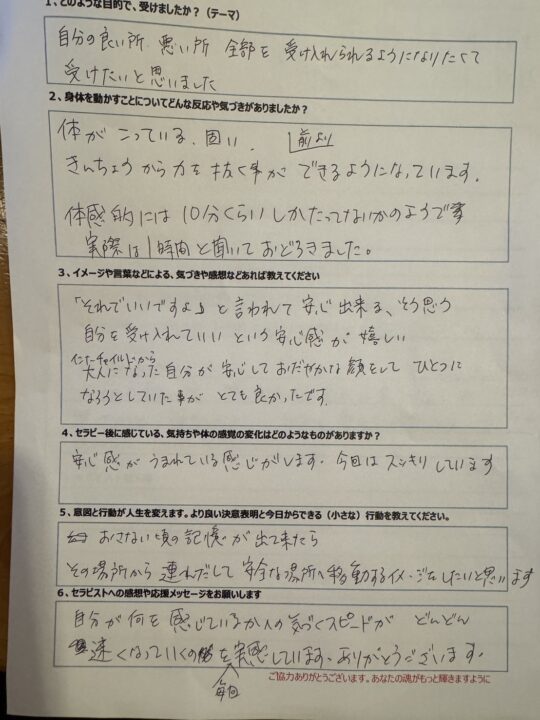 1、どのような目的で、受けましたか？（テーマ）
自分の良い所 悪い所 全部を 受け入れられるようになりたくて
受けたいと思いました
2、身体を動かすことについてどんな反応や気づきがありましたか？
体が こっている、固い、 前より
きんちょうから力を抜く事が できるようになっています。
体感的には 10分くらいしかたってないかのようで
実際は1時間と聞いておどろきました。
3、イメージや言葉などによる、気づきや感想などあれば教えてください
「それでいいですよ」と言われて安心出来る、そう思う
自分を受け入れていいという安心感が嬉しい
インナーチャイルドから
大人になった自分が安心しておだやかな顔をして ひとつに
なろうとしていた事が とても良かったです。
4、セラピー後に感じている、気持ちや体の感覚の変化はどのようなものがありますか？
安心感が うまれている感じがします。今回はスッキリしています
5、意図と行動が人生を変えます。より良い決意表明と今日からできる（小さな）行動を教えてください。
おさない頃の記憶が出て来たら
その場所から 連れだして 安全な場所へ移動するイメージをしたいと思います
6、セラピストへの感想や応援メッセージをお願いします
自分が何を感じているかへの気づくスピードが どんどん
速くなっていくのを実感しています。ありがとうございます。
毎回
ご協力ありがとうございます。あなたの魂がもっと輝きますように